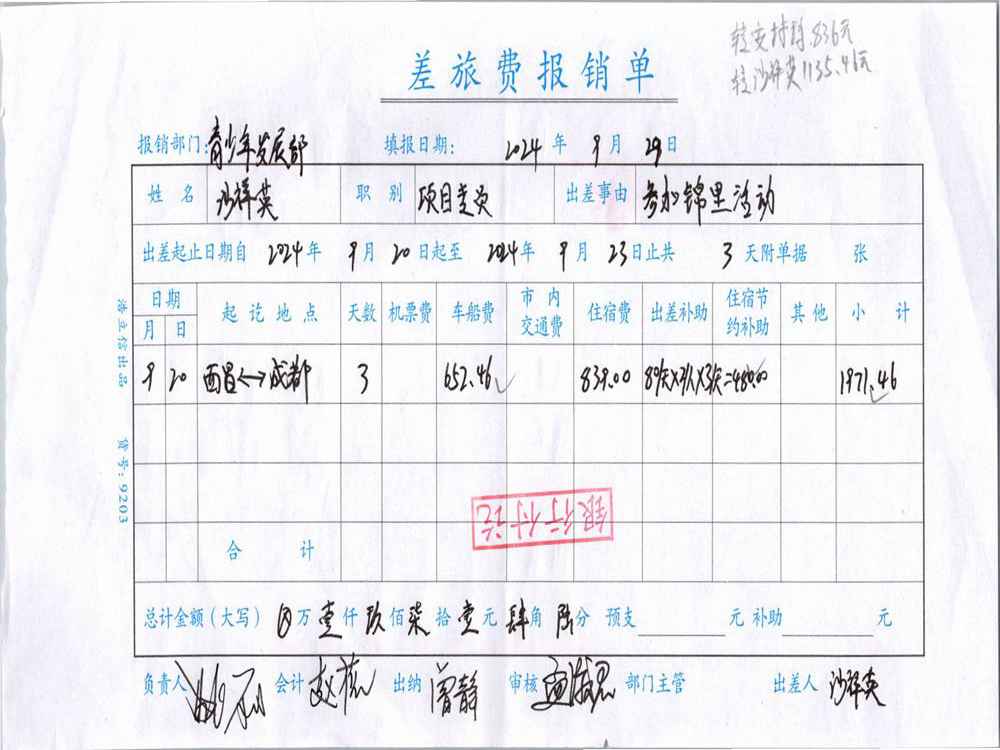 转支付 836元
转沙祥英1135.46元
差旅费报销单
报销部门：青少年发展部 填报日期： 2024 年 9 月 29 日
姓名 沙祥英 职别 项目专员 出差事由 参加锦里活动
出差起止日期自 2024 年 9 月 20 日起至 2024 年 9 月 23 日止共 3 天附单据 张
日期 起讫地点 天数 机票费 车船费 市内交通费 住宿费 出差补助 住宿节约补助 其他 小计
月 日
9 20 西昌<->成都 3 652.46 839.00 80/天×2人×3天=480.00 1971.46
合计
银行付讫
总计金额（大写） ⊗万 壹仟 玖佰 柒拾 壹元 肆角 陆分 预支 元 补助 元
负责人 会计 赵 出纳 曾静 审核 部门主管 出差人 沙祥英
浩立信出品 货号：9203